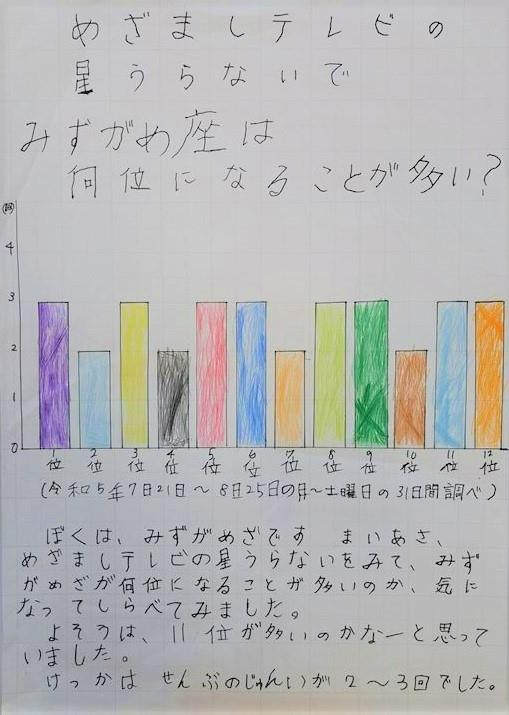 めざましテレビの
星うらないで
みずがめ座は
何位になることが多い?
(回)
4
3
2
1
0
1位 2位 3位 4位 5位 6位 7位 8位 9位 10位 11位 12位
(令和5年7月21日～8月25日の月～土曜日の31日間調べ)
ぼくは、みずがめざです まいあさ、
めざましテレビの星うらないをみて、みず
がめざが何位になることが多いのか、気に
なってしらべてみました。
よそうは、11位が多いのかなーと思って
いました。
けっかは ぜんぶのじゅんいが2～3回でした。